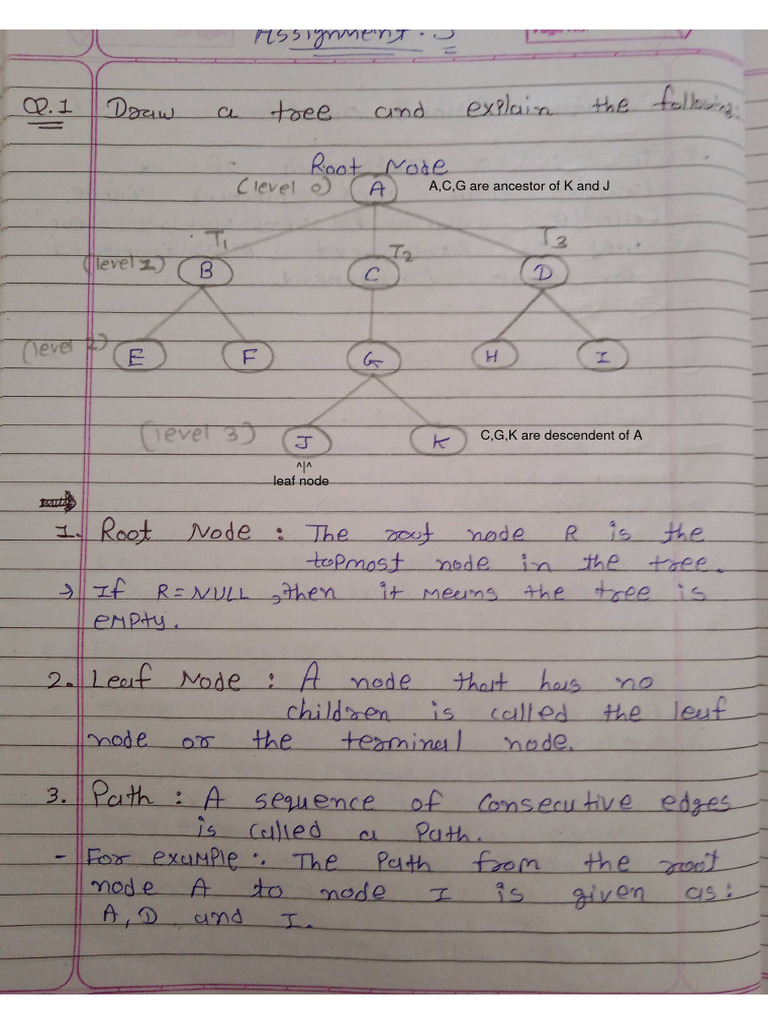 Assignment. 3
Q.1 Draw a tree and explain the following:
Root Node
(level 0) A A,C,G are ancestor of K and J
T1 T2 T3
(level 1) B C D
(level 2) E F G H I
(level 3) J K C,G,K are descendent of A
^|^
leaf node
1. Root Node : The root node R is the
topmost node in the tree.
→ If R = NULL, then it means the tree is
empty.
2. Leaf Node : A node that has no
children is called the leaf
node or the terminal node.
3. Path : A sequence of consecutive edges
is called a Path.
- For example :. The Path from the root
node A to node I is given as:
A, D and I.